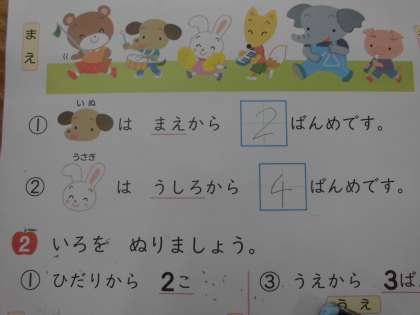 まえ
いぬ
① は まえから 2 ばんめです。
うさぎ
② は うしろから 4 ばんめです。
2 いろを ぬりましょう。
① ひだりから 2こ
③ うえから 3ば
うえ